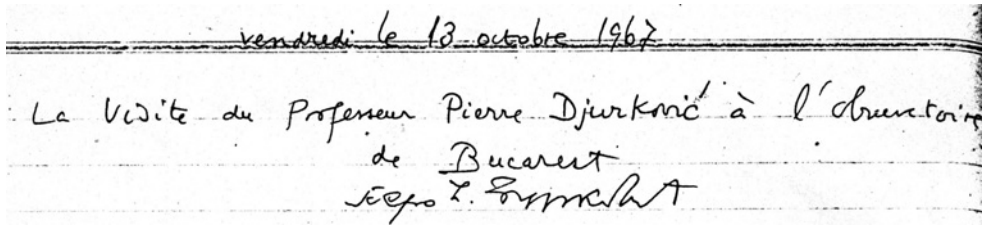 vendredi le 13 octobre 1967
La Visite du Professeur Pierre Djurković à l'observatoire
de Bucarest